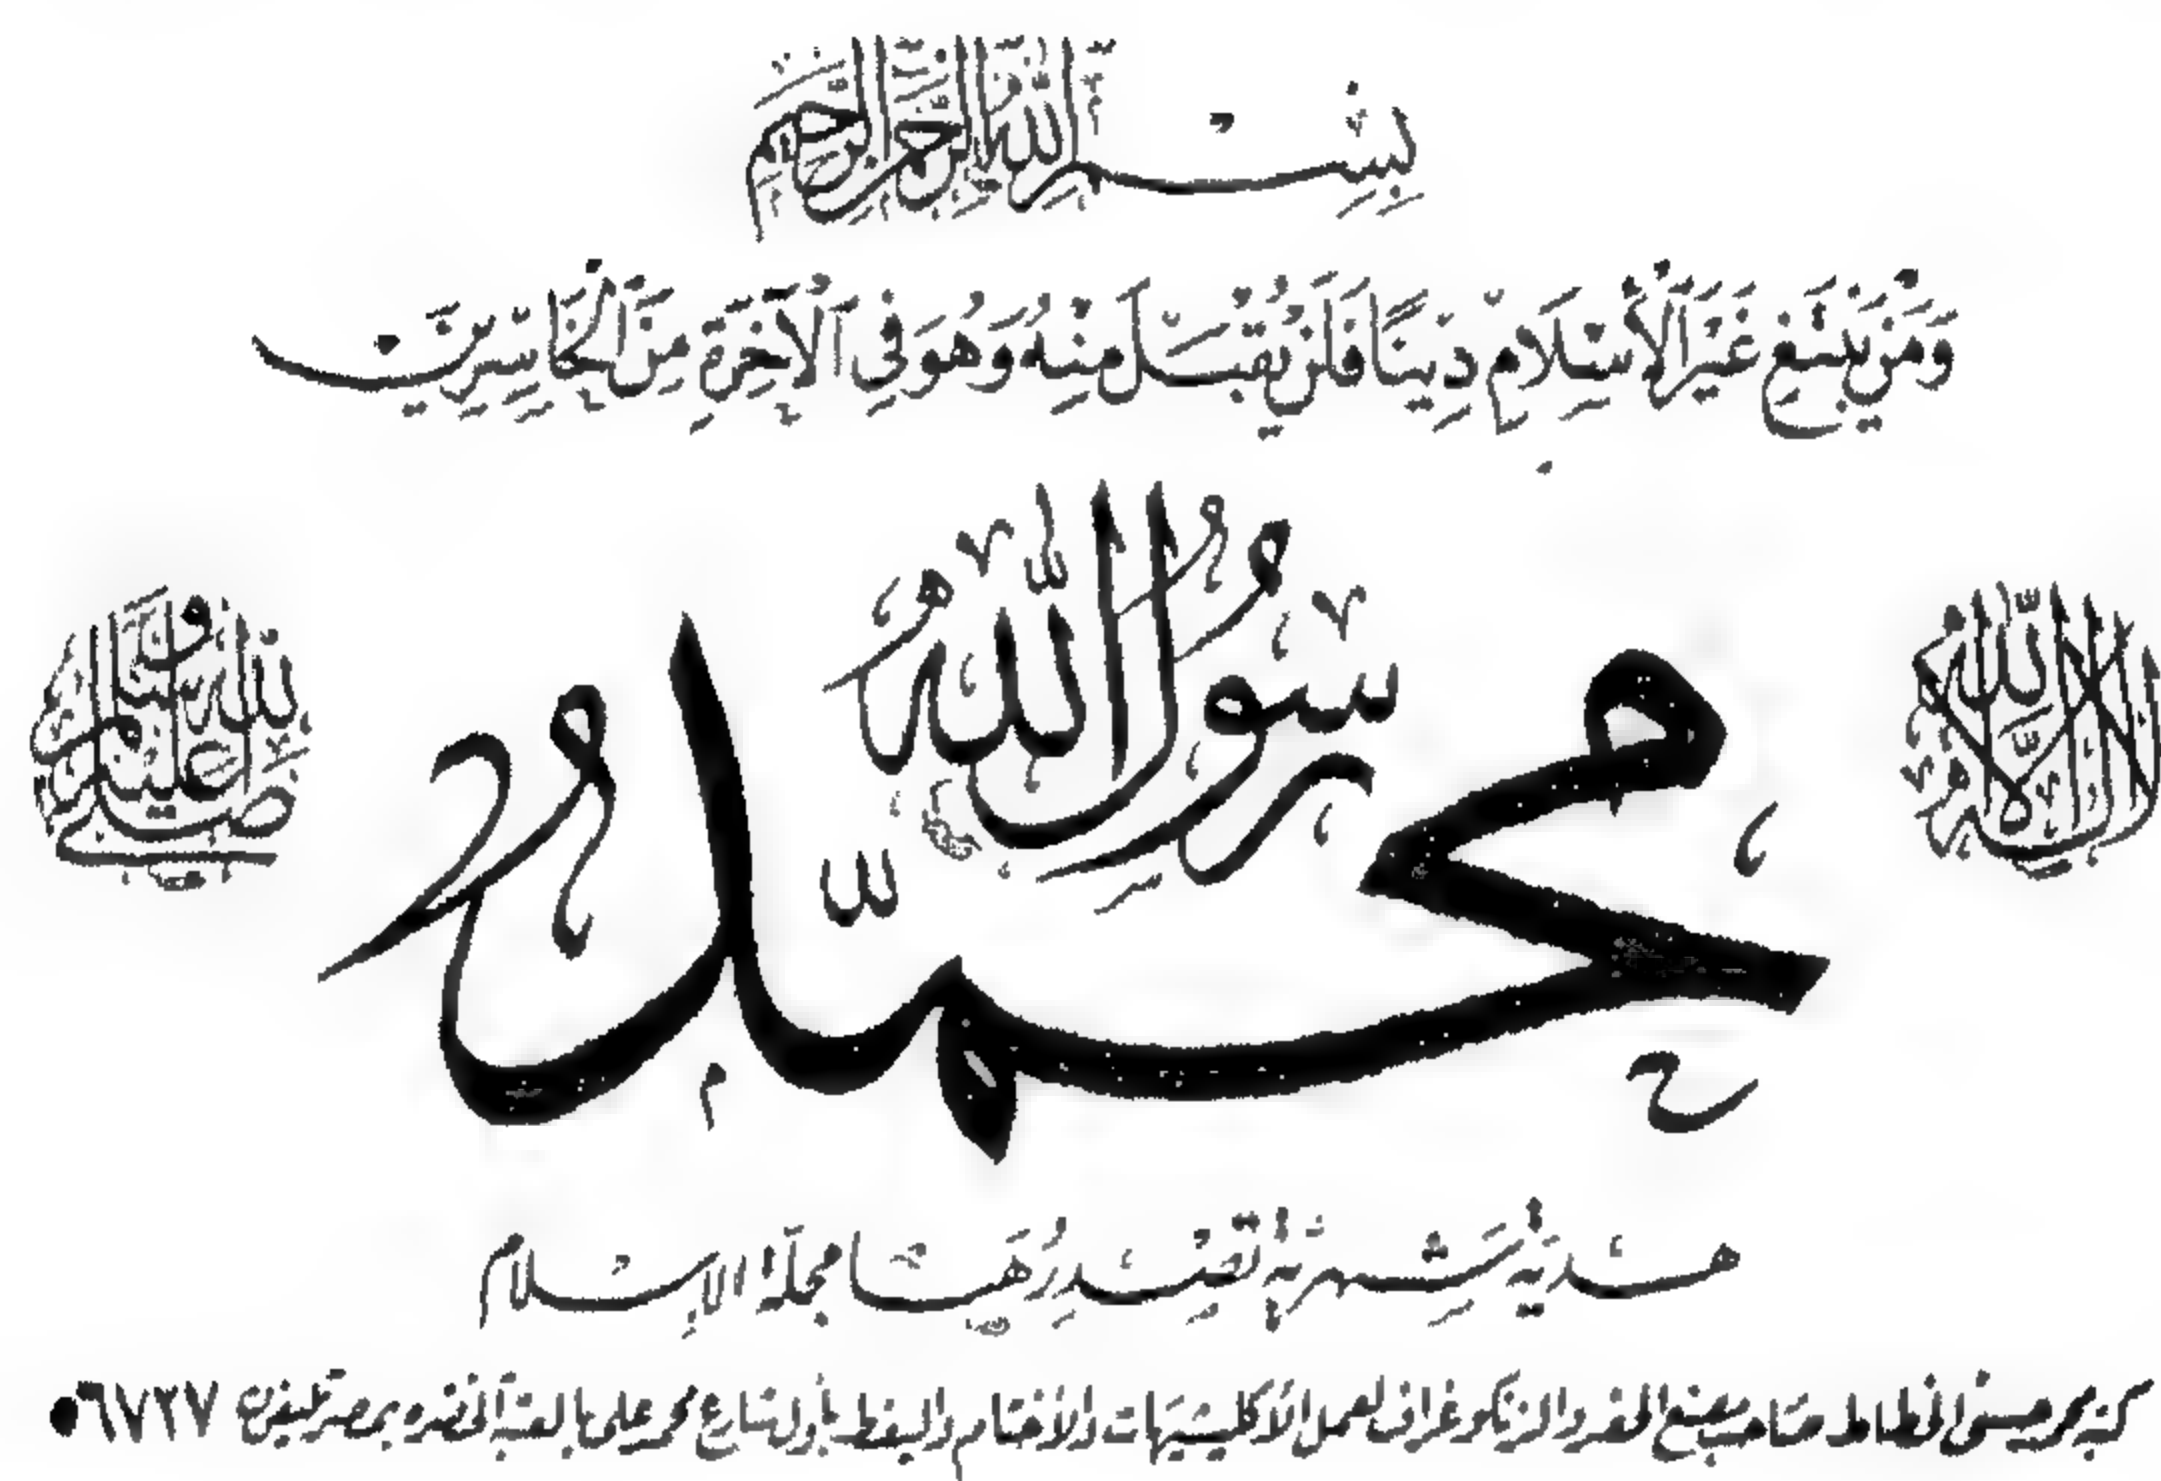 بِسْمِ اللَّهِ الرَّحْمَنِ الرَّحِيمِ
وَمَنْ يَبْتَغِ غَيْرَ الْإِسْلَامِ دِينًا فَلَنْ يُقْبَلَ مِنْهُ وَهُوَ فِي الْآخِرَةِ مِنَ الْخَاسِرِينَ
لا إله إلا الله
محمد رسول الله
صلى الله عليه وسلم
هدية شهرية تصدرها مجلة الإسلام
كتبه محمد حسنى الخطاط صاحب مصنع الحفر والزنكوغراف لعمل الأكليشيهات والأختام واليفط بأول شارع محمد على بالعتبة الخضرء بمصر تليفون ٦٧٢٧